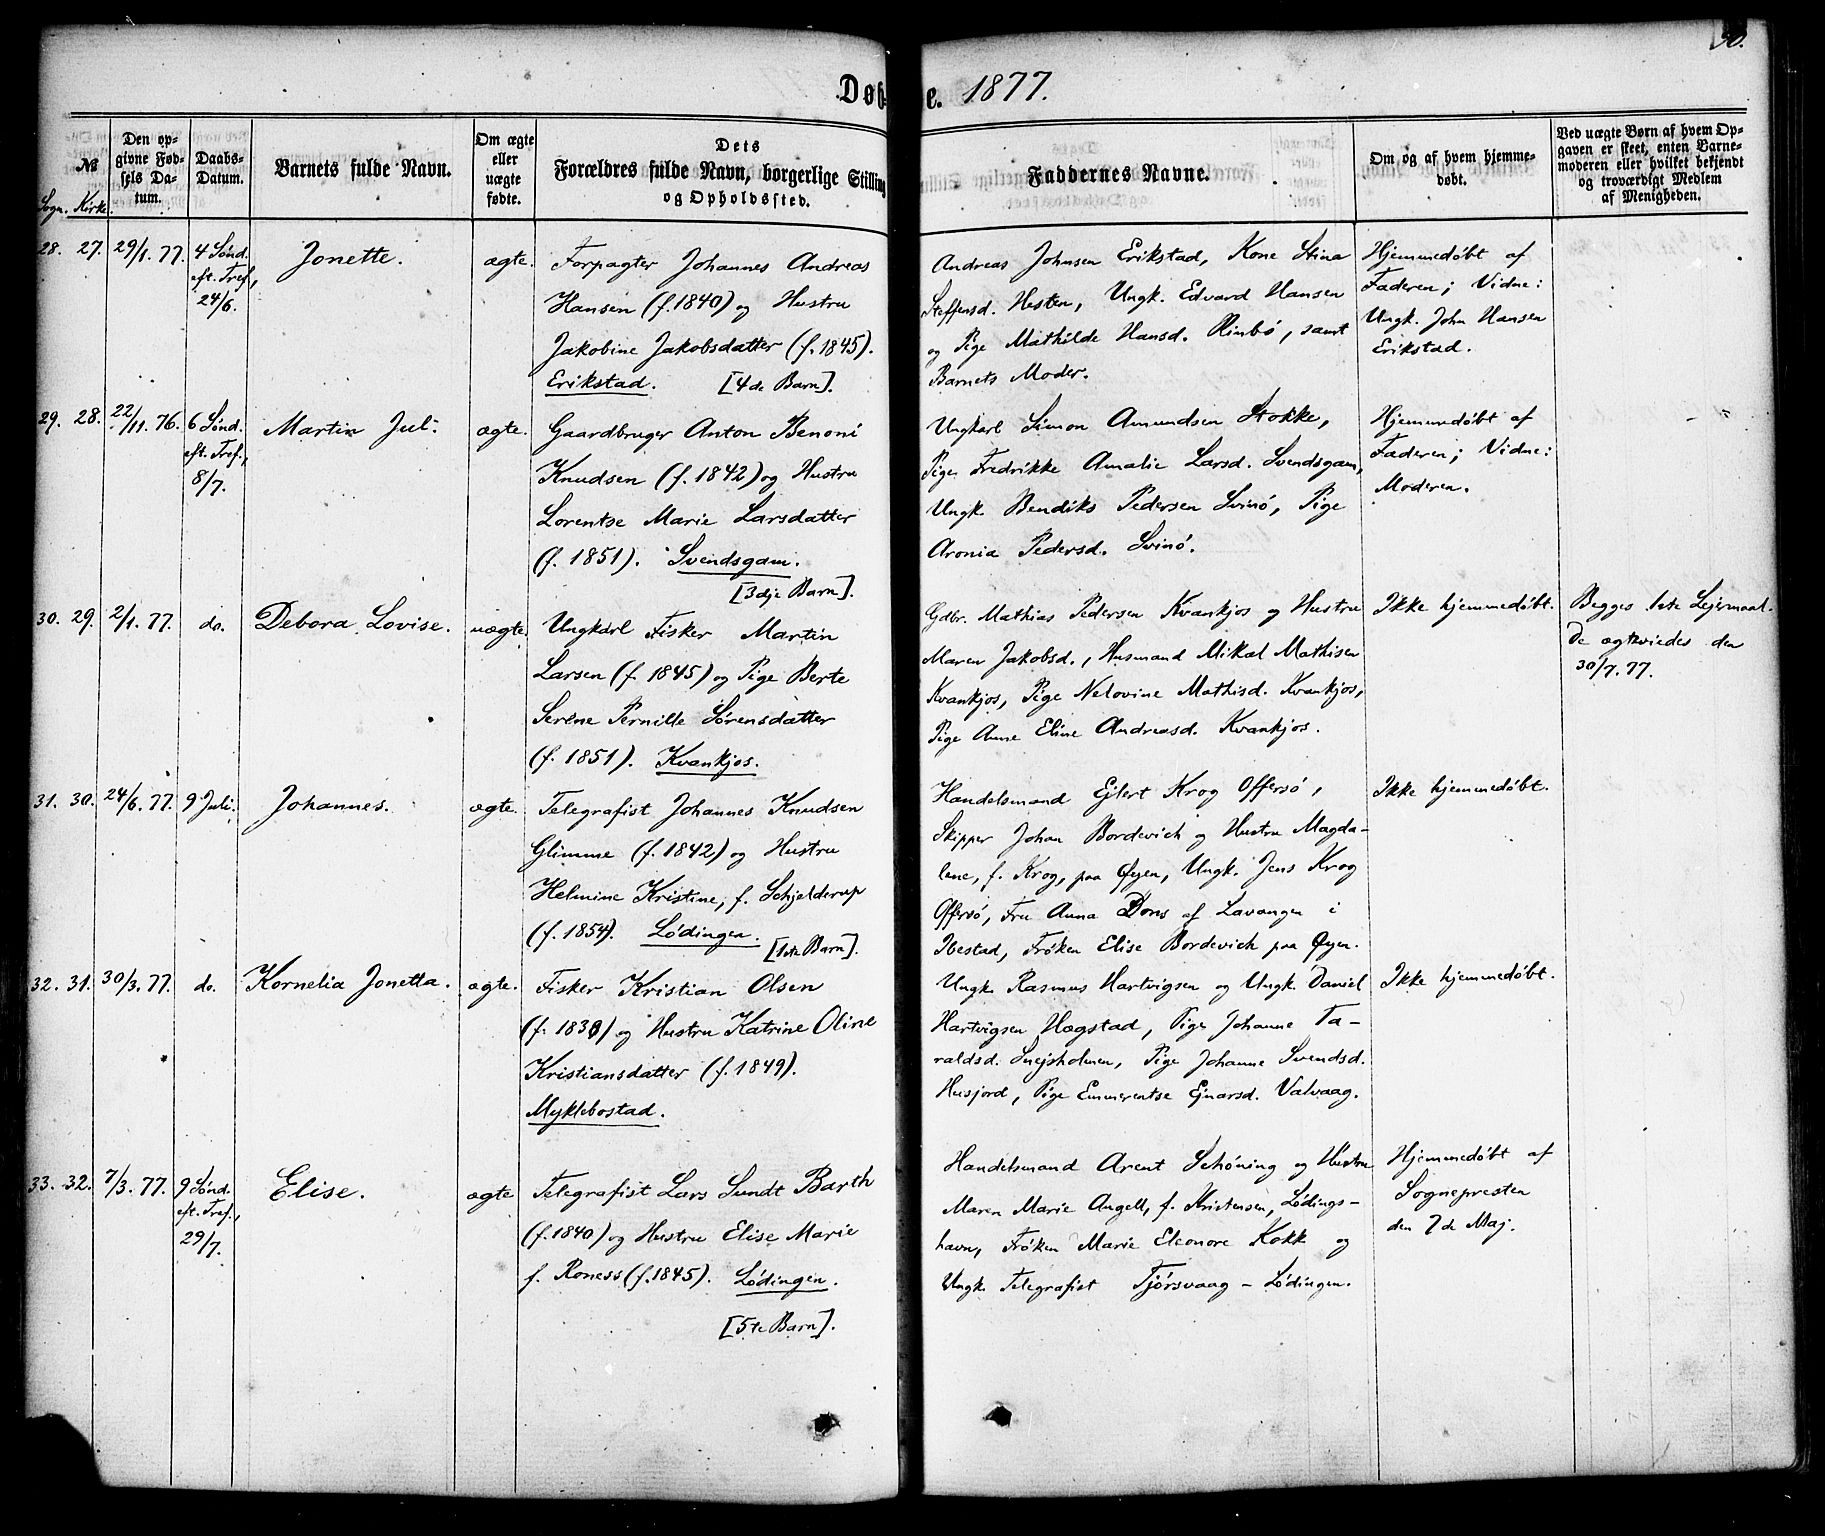 50.
Døb-
te. 1877.
Sogn. № Kirke.
Den op-
givne Fød-
sels Da-
tum.
Daabs-
Datum.
Barnets fulde Navn.
Om ægte
eller
uægte
fødte.
Dets
Forældres fulde Navn, borgerlige Stilling
og Opholdssted.
Faddernes Navne.
Om og af hvem hjemme-
døbt.
Ved uægte Børn af hvem Op-
gaven er skeet, enten Barne-
moderen eller hvilket bekjendt
og troværdigt Medlem
af Menigheden.
28. 27. 29/1. 77. 4 Sønd.
eft. Tref.,
24/6.
Jonette.
ægte.
Forpagter Johannes Andreas
Hansen (f. 1840) og Hustru
Jakobine Jakobsdatter (f. 1845).
Erikstad. [4de Barn].
Andreas Johnsen Erikstad, Kone Stina
Steffensd. Hesten, Ungk. Edvard Hansen
og Pige Mathilde Hansd. Rinbø, samt
Barnets Moder.
Hjemmedøbt af
Faderen; Vidne:
Ungk. John Hansen
Erikstad.
29. 28. 22/11. 76. 6 Sønd.
eft. Tref.,
8/7.
Martin Jul.
ægte.
Gaardbruger Anton Benoni
Knudsen (f. 1842) og Hustru
Lorentse Marie Larsdatter
(f. 1851). Svendsgam.
[3dje Barn].
Ungkarl Simon Amundsen Stokke,
Pige Fredrikke Amalie Larsd. Svendsgam,
Ungk. Bendiks Pedersen Svinø, Pige
Aronia Pedersd. Svinø.
Hjemmedøbt af
Faderen; Vidne:
Moderen.
30. 29. 2/1. 77. do. Debora Lovise. uægte.
Ungkarl Fisker Martin
Larsen (f. 1845) og Pige Berte
Serêne Pernille Sørensdatter
(f. 1851). Kvankjos.
Gdbr. Mathias Pedersen Kvankjos og Hustru
Maren Jakobsd., Husmand Mikal Mathisen
Kvankjos, Pige Nelovine Mathisd. Kvankjos,
Pige Anne Eline Andreasd. Kvankjos.
Ikke hjemmedøbt.
Begges 1ste Lejermaal.
De ægteviedes den
30/7. 77.
31. 30. 24/6. 77. 9 Juli. Johannes. ægte.
Telegrafist Johannes Knudsen
Glimme (f. 1842) og Hustru
Helmine Kristine, f. Schjelderup
(f. 1854). Lødingen.
[1ste Barn].
Handelsmand Ejlert Krog Offersø,
Skipper Johan Bordevich og Hustru Magda-
lene, f. Krog, paa Øyen, Ungk. Jens Krog
Offersø, Fru Anna Dons af Lavangen i
Ibestad, Frøken Elise Bordevich paa Øyen.
Ikke hjemmedøbt.
32. 31. 30/3. 77. do. Kornelia Jonetta. ægte.
Fisker Kristian Olsen
(f. 1838) og Hustru Katrine Oline
Kristiansdatter (f. 1849).
Myklebostad.
Ungk. Rasmus Hartvigsen og Ungk. Daniel
Hartvigsen Høgstad, Pige Johanne Ta-
raldsd. Snejsholmen, Pige Johanne Svendsd.
Husjord, Pige Emmerentse Ejnarsd. Valvaag.
Ikke hjemmedøbt.
33. 32. 7/3. 77. 9 Sønd.
eft. Tref.,
29/7.
Elise.
ægte
Telegrafist Lars Sundt Barth
(f. 1840) og Hustru Elise Marie
f. Roness (f. 1845). Lødingen.
[5te Barn].
Handelsmand Arent Schøning og Hustru
Maren Marie Angell, f. Kristensen, Lødings-
havn, Frøken Marie Eleonore Kokk og
Ungk. Telegrafist Tjørsvaag – Lødingen.
Hjemmedøbt af
Sognepresten
den 7de Maj.